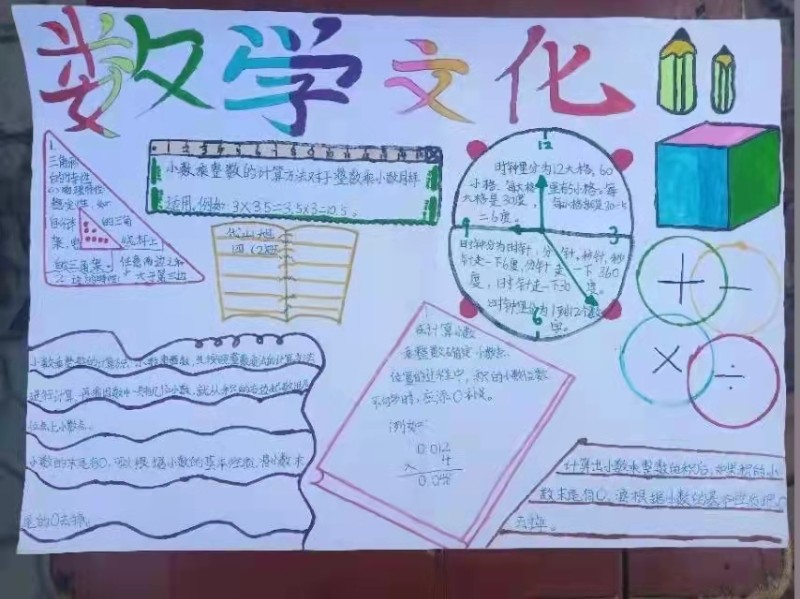 数学文化
1 2 3 4 5 6 7 8 9 10
小数乘整数的计算方法对于整数乘小数同样
适用,例如:3×3.5=3.5×3=10.5。
1.
三角形
的特性
(1)物理特性:
稳定性,如
自行车
的三角
架,电
线杆上
的三角架。
任意两边之和
大于第三边
四(2)班
12
3
6
9
时钟里分为12大格,60
小格,每大格里有5小格,每
大格是30度,
每小格都是30÷5
=6度。
时钟分为时针,分针,秒针,秒
针走一下6度,分针走一下360
度,时针走一下30度。
时钟里分为1到12个数
在计算小数
乘整数确定小数点
位置的过程中,积的小数位数
不够时,应添0补足。
例如:
0.012
× 4
0.048
+
−
×
÷
小数乘整数的计算法:小数乘整数,先按照整数乘法的计算方法
进行计算,再看因数中一共有几位小数,就从积的右边起数出几
位点上小数点。
小数的末尾是0,可以根据小数的基本性质,将小数末
尾的0去掉。
计算出小数乘整数的积后,如果积的小
数末尾有0,要根据小数的基本性质把0
去掉。